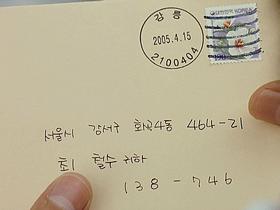 강릉
2005.4.15
2100404
대한민국 KOREA
서울시 강서구 화곡4동 464-21
최 철수 귀하
138-746